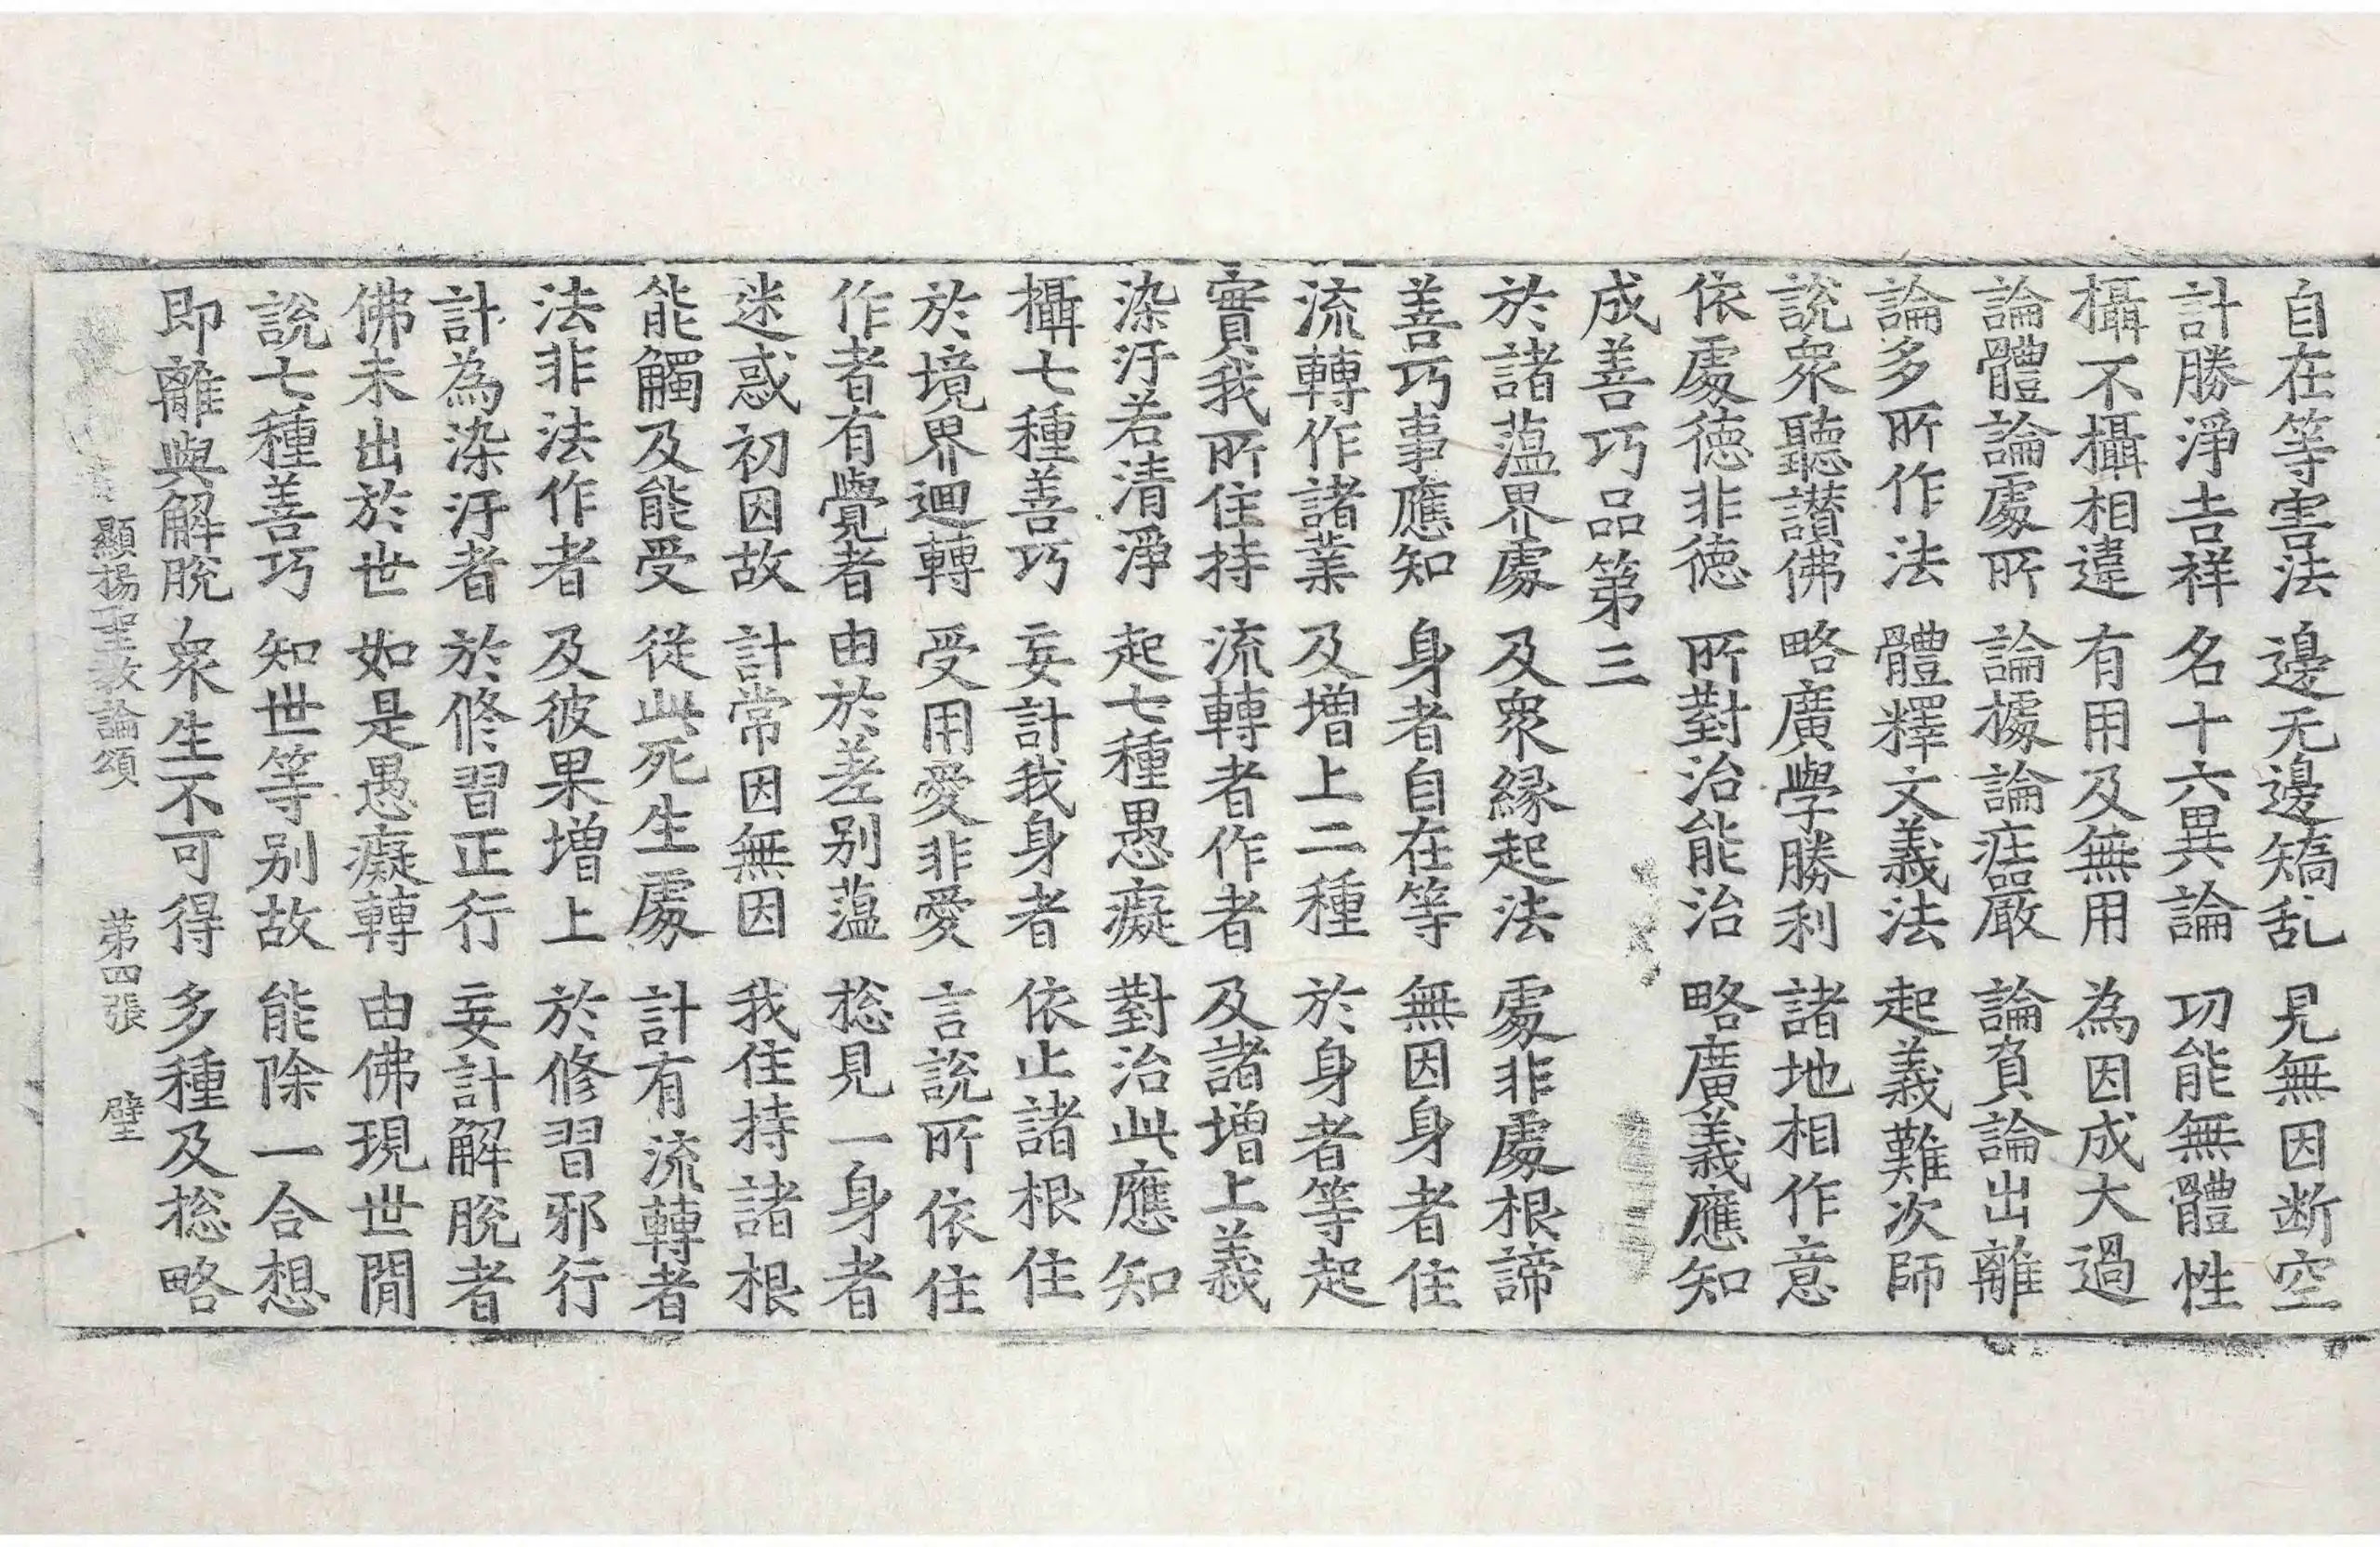 自在等害法　邊无邊矯乱　見無因断空
計勝淨吉祥　名十六異論　功能無體性
攝不攝相違　有用及無用　為因成大過
論體論處所　論據論㽵嚴　論負論出離
論多所作法　體釋文義法　起義難次師
說衆聽讃佛　略廣學勝利　諸地相作意
依處徳非徳　所對治能治　略廣義應知
成善巧品第三
於諸薀界處　及衆縁起法　處非處根諦
善巧事應知　身者自在等　無因身者住
流轉作諸業　及增上二種　於身者等起
實我所住持　流轉者作者　及諸增上義
染汙若清淨　起七種愚癡　對治此應知
攝七種善巧　妄計我身者　依止諸根住
於境界迴轉　受用愛非愛　言說所依住
作者有覺者　由於差别薀　捴見一身者
迷惑初因故　計常因無因　我住持諸根
能觸及能受　從此死生處　計有流轉者
法非法作者　及彼果增上　於修習邪行
計為染汙者　於修習正行　妄計解脫者
佛未出於世　如是愚癡轉　由佛現世閒
說七種善巧　知世等别故　能除一合想
即離與解脫　衆生不可得　多種及捴略
顯揚聖教論頌　苐四張　壁